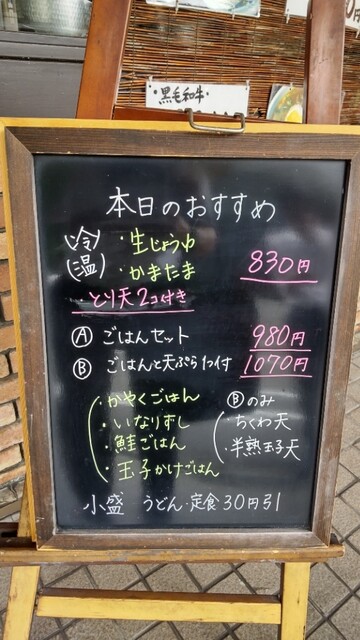 黒毛和牛
本日のおすすめ
(冷) ・生じょうゆ
(温) ・かまたま 830円
・とり天2コ付き
Ⓐ ごはんセット 980円
Ⓑ ごはんと天ぷら1つ付 1070円
・かやくごはん
・いなりずし
・鮭ごはん
・玉子かけごはん
Ⓑのみ
・ちくわ天
・半熟玉子天
小盛 うどん・定食30円引